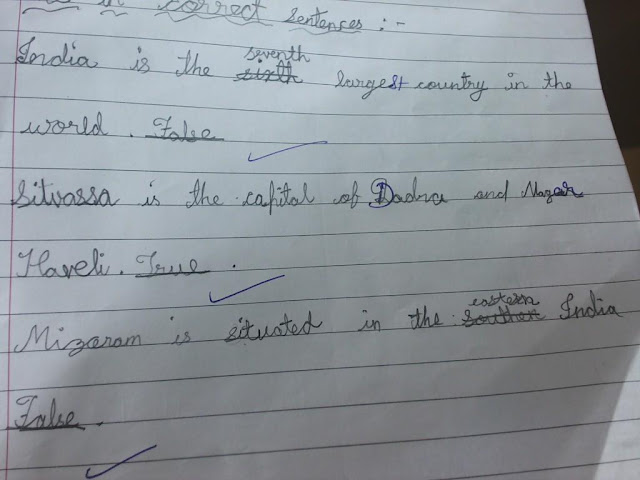 in correct sentences :-
India is the sixth seventh largest country in the
world. False
Silvassa is the capital of Dadra and Nagar
Haveli. True.
Mizaram is situated in the southern eastern India
False.